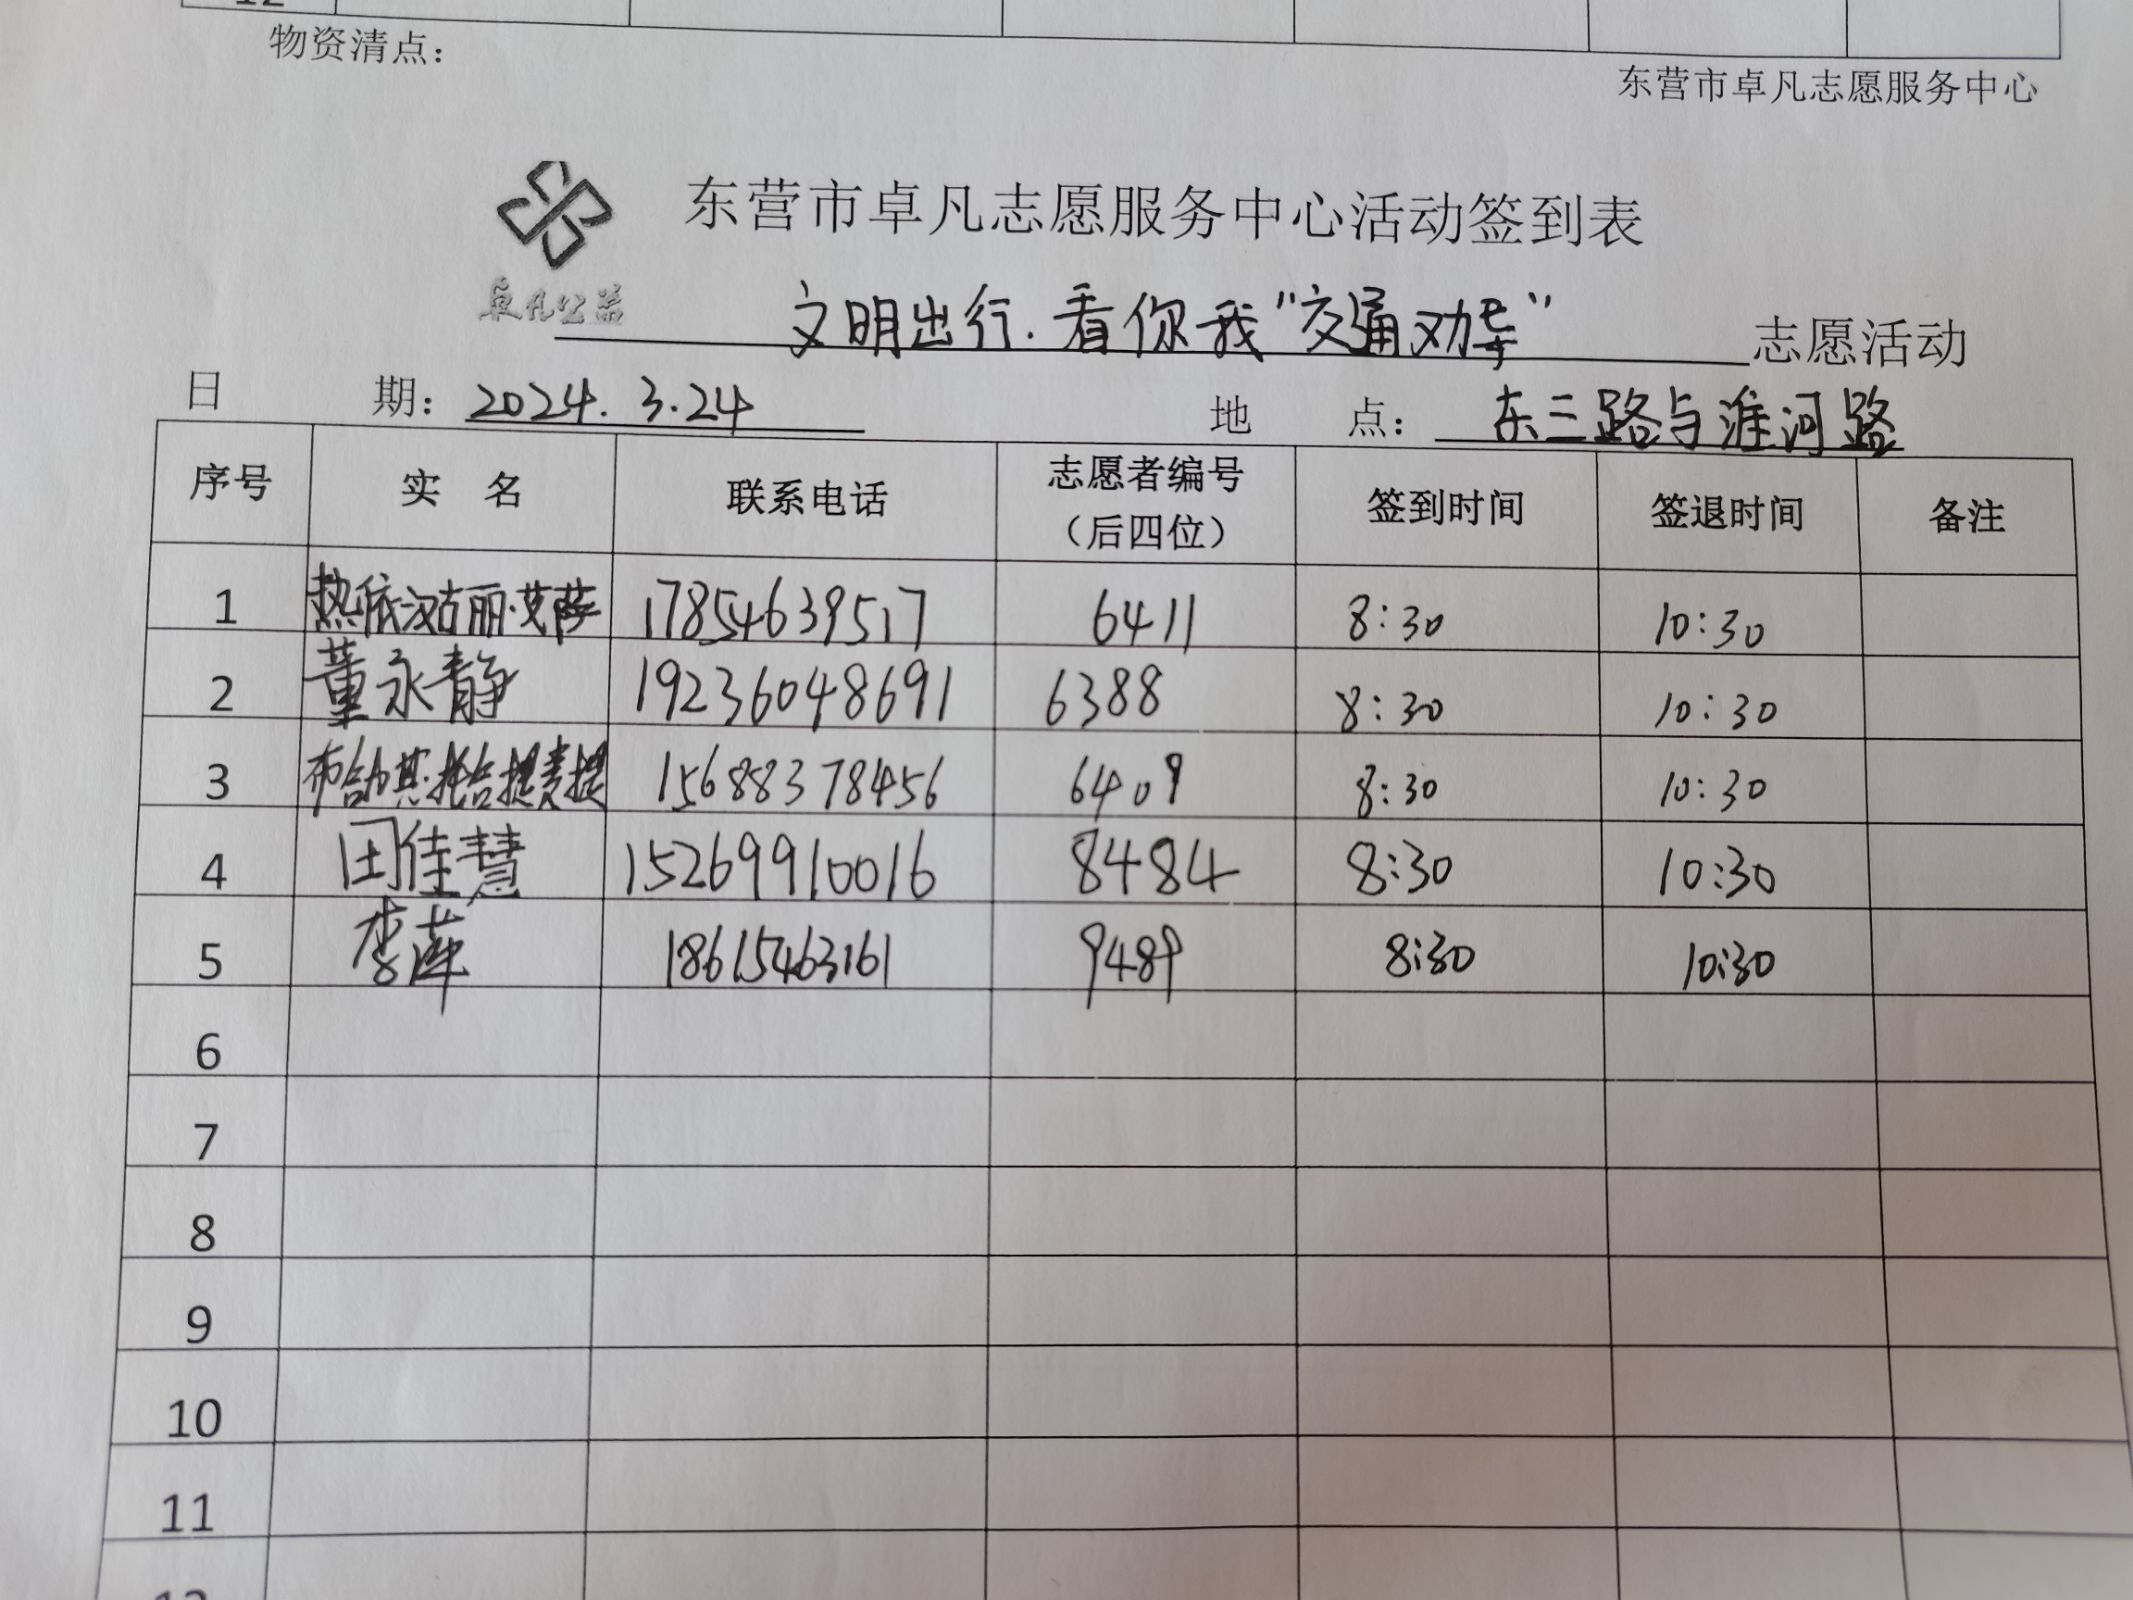 12
物资清点：
东营市卓凡志愿服务中心
东营市卓凡志愿服务中心活动签到表
卓凡公益
文明出行.看你我"交通劝导" 志愿活动
日 期：2024.3.24 地 点：东三路与淮河路
序号 实 名 联系电话 志愿者编号（后四位） 签到时间 签退时间 备注
1 热依汉古丽·艾萨 17854639517 6411 8:30 10:30
2 董永静 19236048691 6388 8:30 10:30
3 布合加其·托合提麦提 15688378456 6409 8:30 10:30
4 田佳慧 15269910016 8484 8:30 10:30
5 李萍 18615463161 9489 8:30 10:30
6
7
8
9
10
11
12